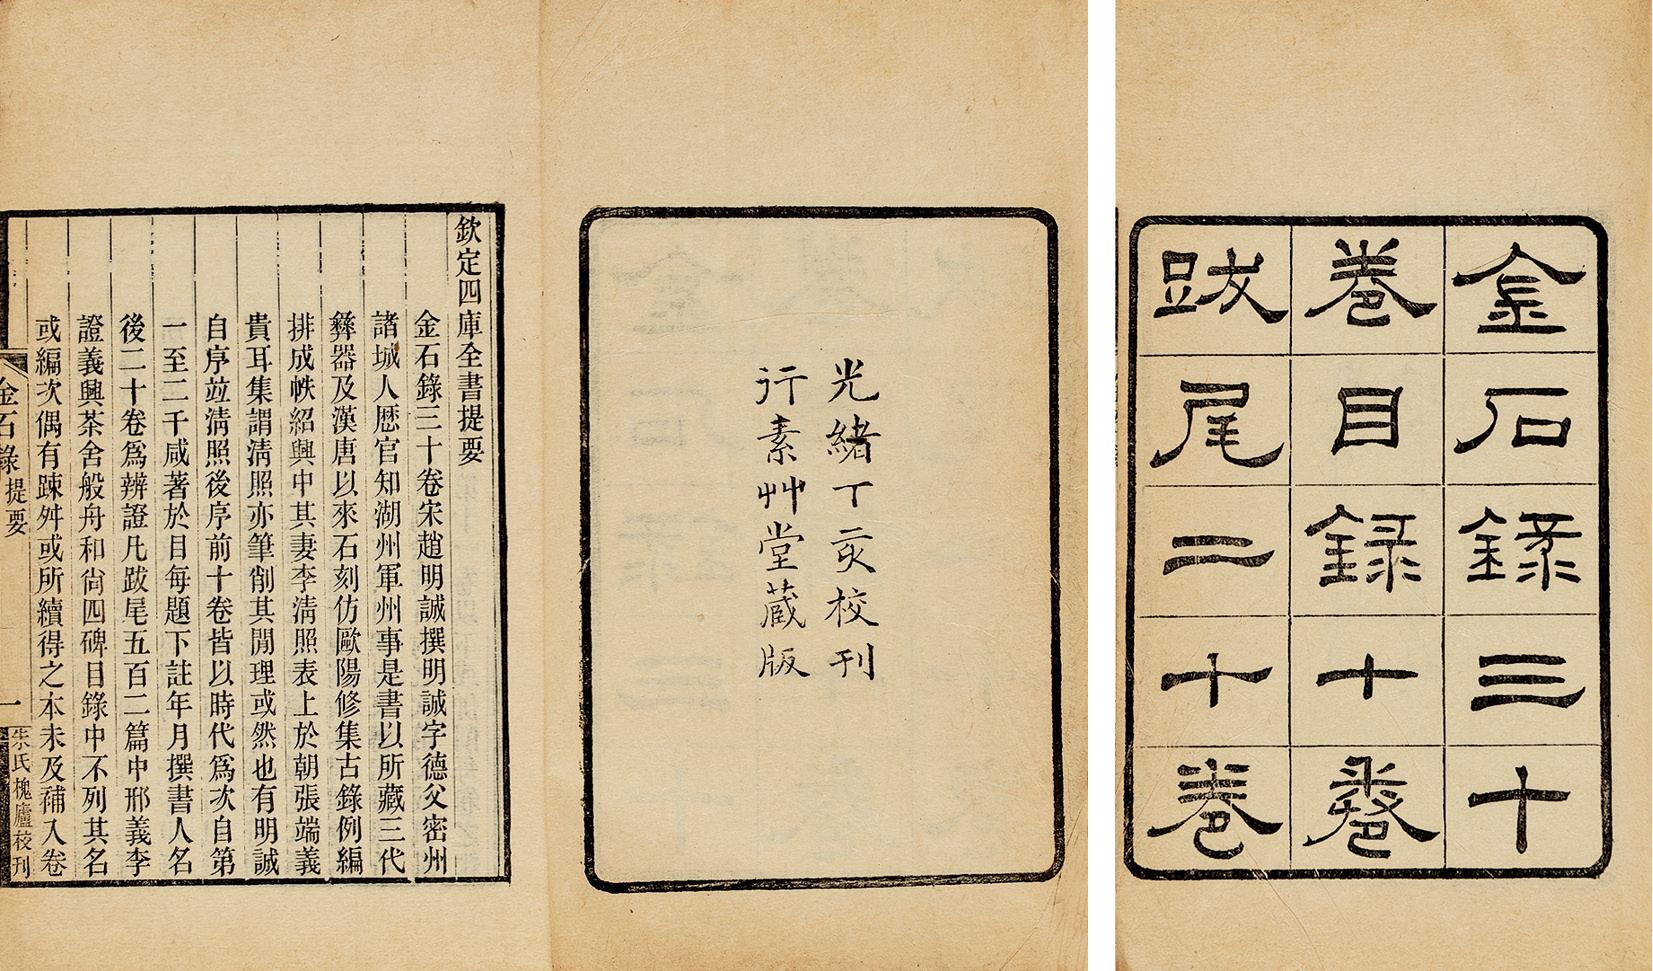 金石錄三十
卷目錄十卷
跋尾二十卷
光緒丁亥校刊
行素艸堂藏版
欽定四庫全書提要
金石錄三十卷宋趙明誠撰明誠字德父密州
諸城人歷官知湖州軍州事是書以所藏三代
彝器及漢唐以來石刻仿歐陽修集古錄例編
排成帙紹興中其妻李清照表上於朝張端義
貴耳集謂清照亦筆削其閒理或然也有明誠
自序並清照後序前十卷皆以時代為次自第
一至二千咸著於目每題下註年月撰書人名
後二十卷為辨證凡跋尾五百二篇中邢義李
證義興茶舍般舟和尙四碑目錄中不列其名
或編次偶有踈舛或所續得之本未及補入卷
金石錄提要
一
朱氏槐廬校刊